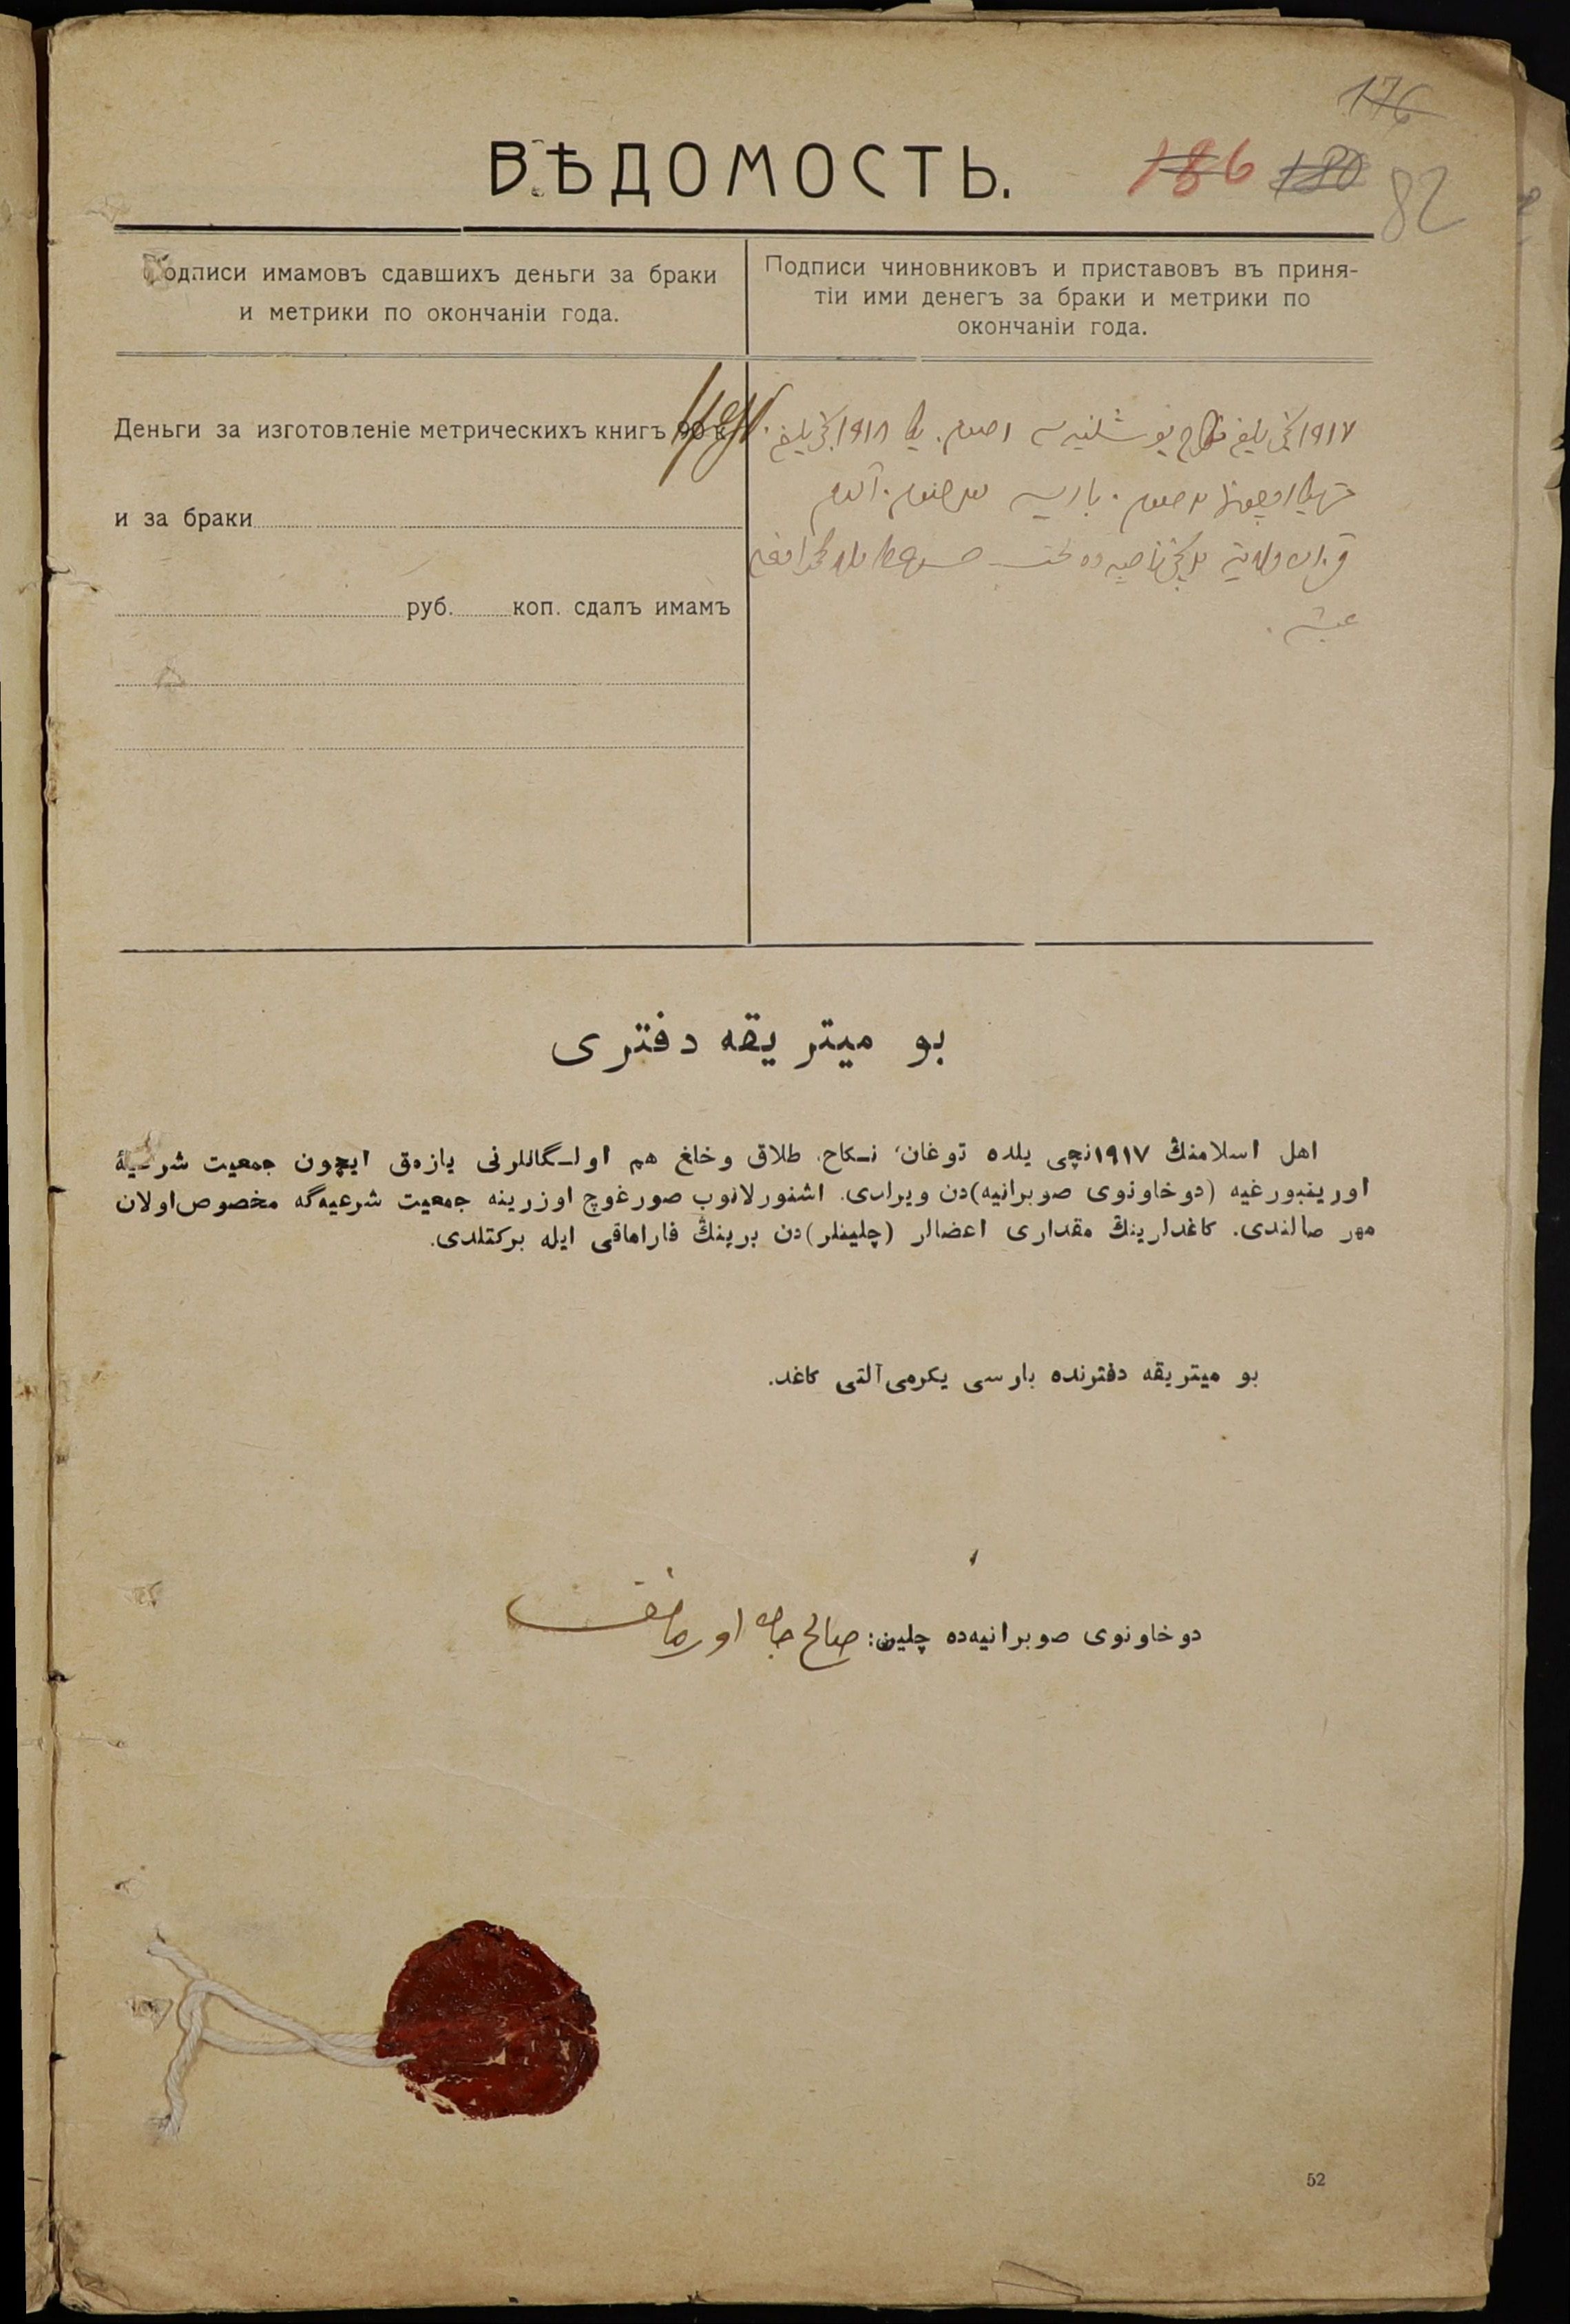 176
ВѢДОМОСТЬ.
186 180 82
Подписи имамовъ сдавшихъ деньги за браки
и метрики по окончаніи года.
Подписи чиновниковъ и приставовъ въ приня-
тіи ими денегъ за браки и метрики по
окончаніи года.
Деньги за изготовленіе метрическихъ книгъ 90 к.
и за браки
руб. коп. сдалъ имамъ
١٩١٧ نچی یلغی نکاح
١٩١٨ نچی یلغی
بو میتریقه دفتری
اهل اسلامنڭ ١٩١٧نچی یلده توغان، نـكاح، طلاق وخلغ هم اولـگانلرنی یازەق ایچون جمعیت شرعیۀ
اورینبورغیه (دوخاونوی صوبرانیه)دن ویرلدی. اشنورلانوب صورغوچ اوزرینه جمعیت شرعیه‌گه مخصوص اولان
مهر صالندی. كاغدلرینڭ مقداری اعضالر (چلینلر)دن برینڭ قاراماقی ایله بركتلدی.
بو میتریقه دفترنده بارسی یكرمی آلتی كاغد.
دوخاونوی صوبرانیه‌ده چلین: صالح جان اورمانف
52